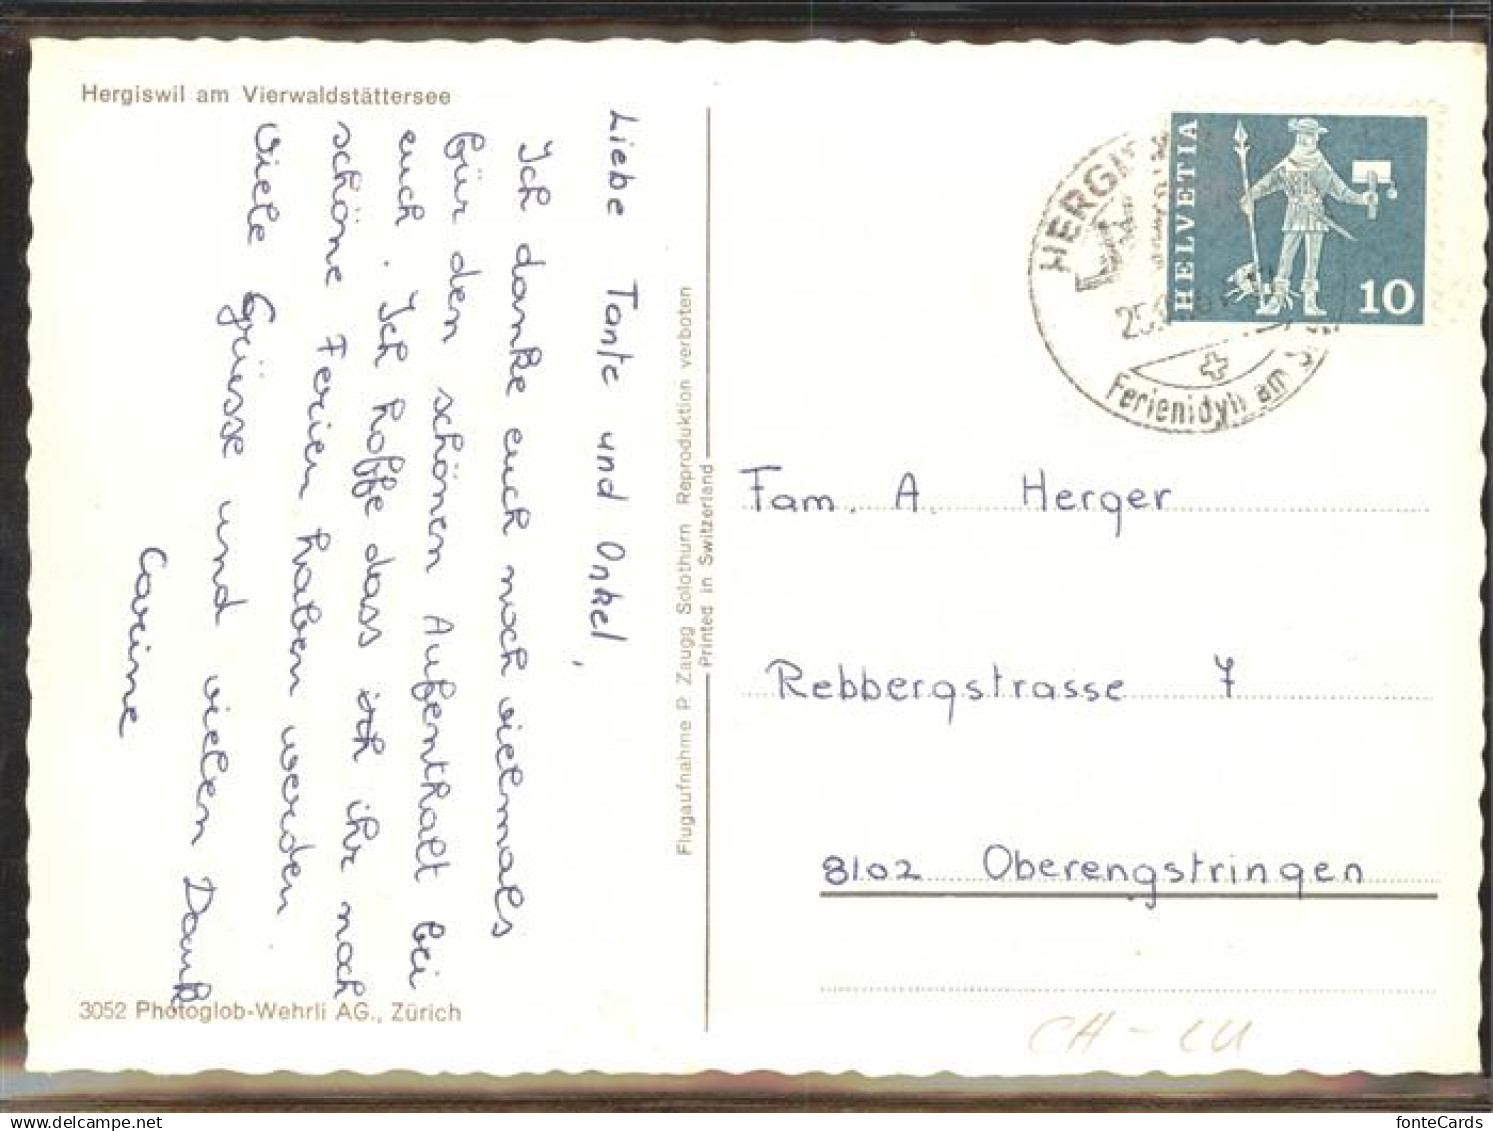 Hergiswil am Vierwaldstättersee
Liebe Tante und Onkel,
Ich danke euch noch vielmals
für den schönen Aufenthalt bei
euch. Ich hoffe dass ihr noch
schöne Ferien haben werden
Viele Grüsse und vielen Dank
Corinne
3052 Photoglob-Wehrli AG., Zürich
Flugaufnahme P. Zaugg Solothurn Reproduktion verboten
Printed in Switzerland
HELVETIA
10
Ferienidyll am
Fam. A. Herger
Rebbergstrasse 7
8102 Oberengstringen
CH - LU
fonteCards